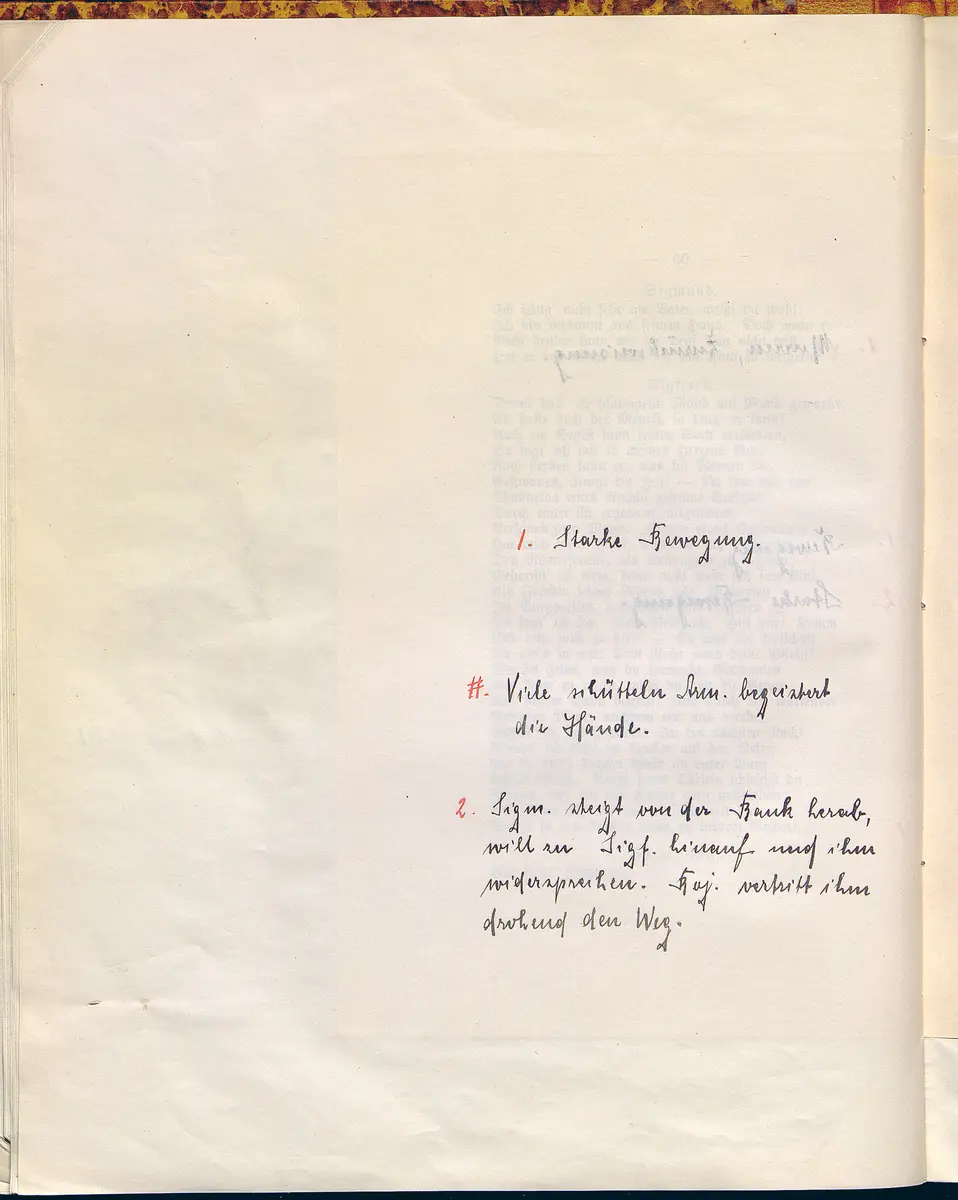 1. Starke Bewegung.
#. Viele schütteln Arm. begeistert
die Hände.
2. Sigm. steigt von der Bank herab,
will zu Sigf. hinauf und ihm
widersprechen. Boj. vertritt ihm
drohend den Weg.